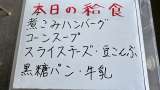 本日の給食
煮こみハンバーグ
コーンスープ
スライスチーズ・豆こんぶ
黒糖パン・牛乳